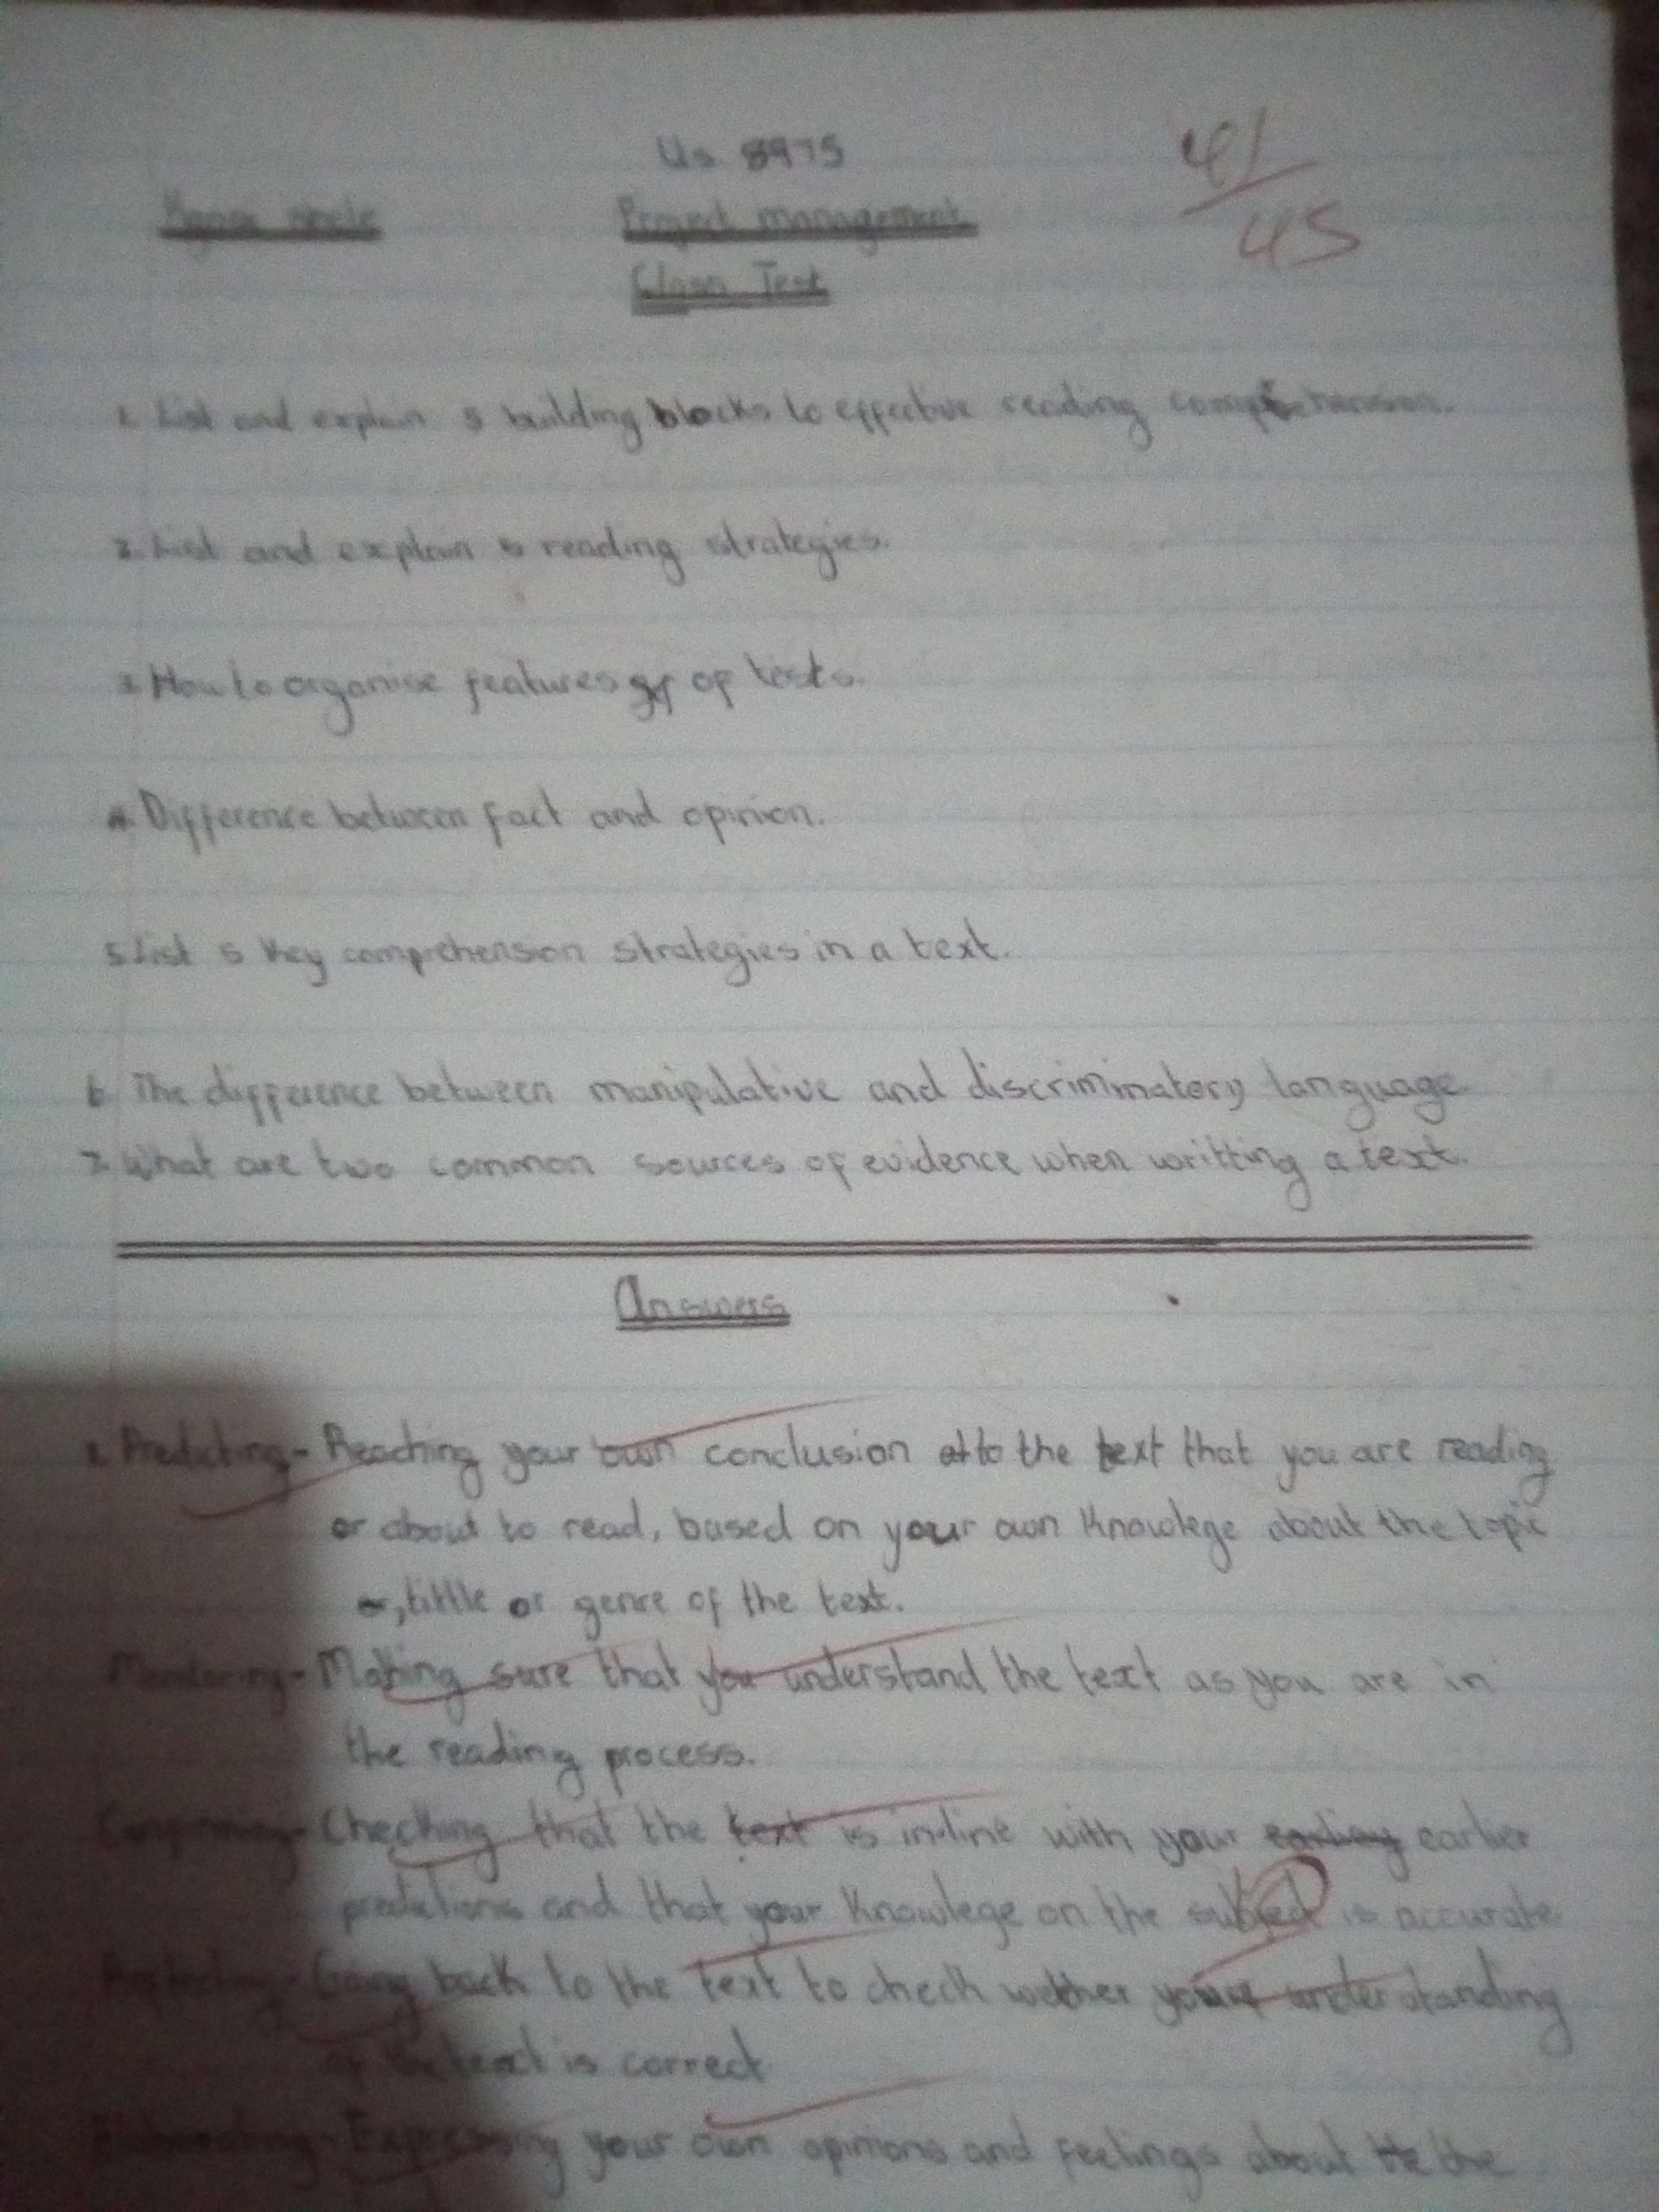 Us 8975
41/45
Project management
Class Test
1. List and explain 5 building blocks to effective reading comprehension.
2. List and explain 5 reading strategies.
3. How to organise features of texts.
4. Difference between fact and opinion.
5. List 5 key comprehension strategies in a text.
6. The difference between manipulative and discriminatory language
7. What are two common sources of evidence when writting a text.
Answers
1. Predicting - Reaching your own conclusion to the text that you are reading
or about to read, based on your own knowlege about the topic
, tittle or genre of the text.
Monitoring - Making sure that you understand the text as you are in
the reading process.
Confirming - Checking that the text is in-line with your earlier
predictions and that your knowlege on the subject is accurate
Reflecting - Going back to the text to check wether your understanding
of the text is correct
Elaborating - Expressing your own opinions and feelings about the